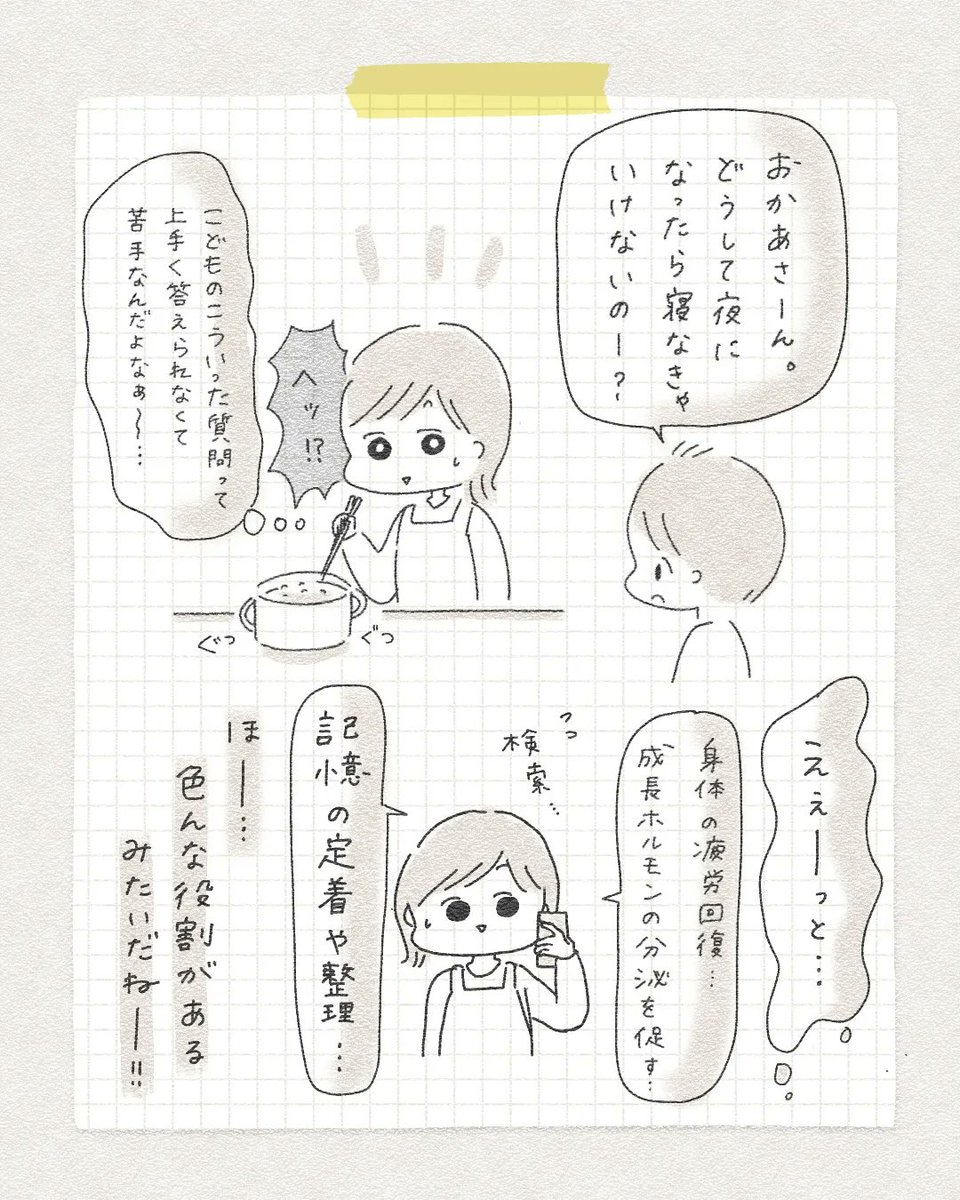 おかあさーん。
どうして夜に
なったら寝なきゃ
いけないのー?
ヘッ!?
こどものこういった質問って
上手く答えられなくて
苦手なんだよなぁ〜〜…
ぐつ
ぐつ
えぇーっと…
身体の疲労回復…
成長ホルモンの分泌を促す…
っっ
検索…
記憶の定着や整理…
ほー…
色んな役割がある
みたいだねー!!